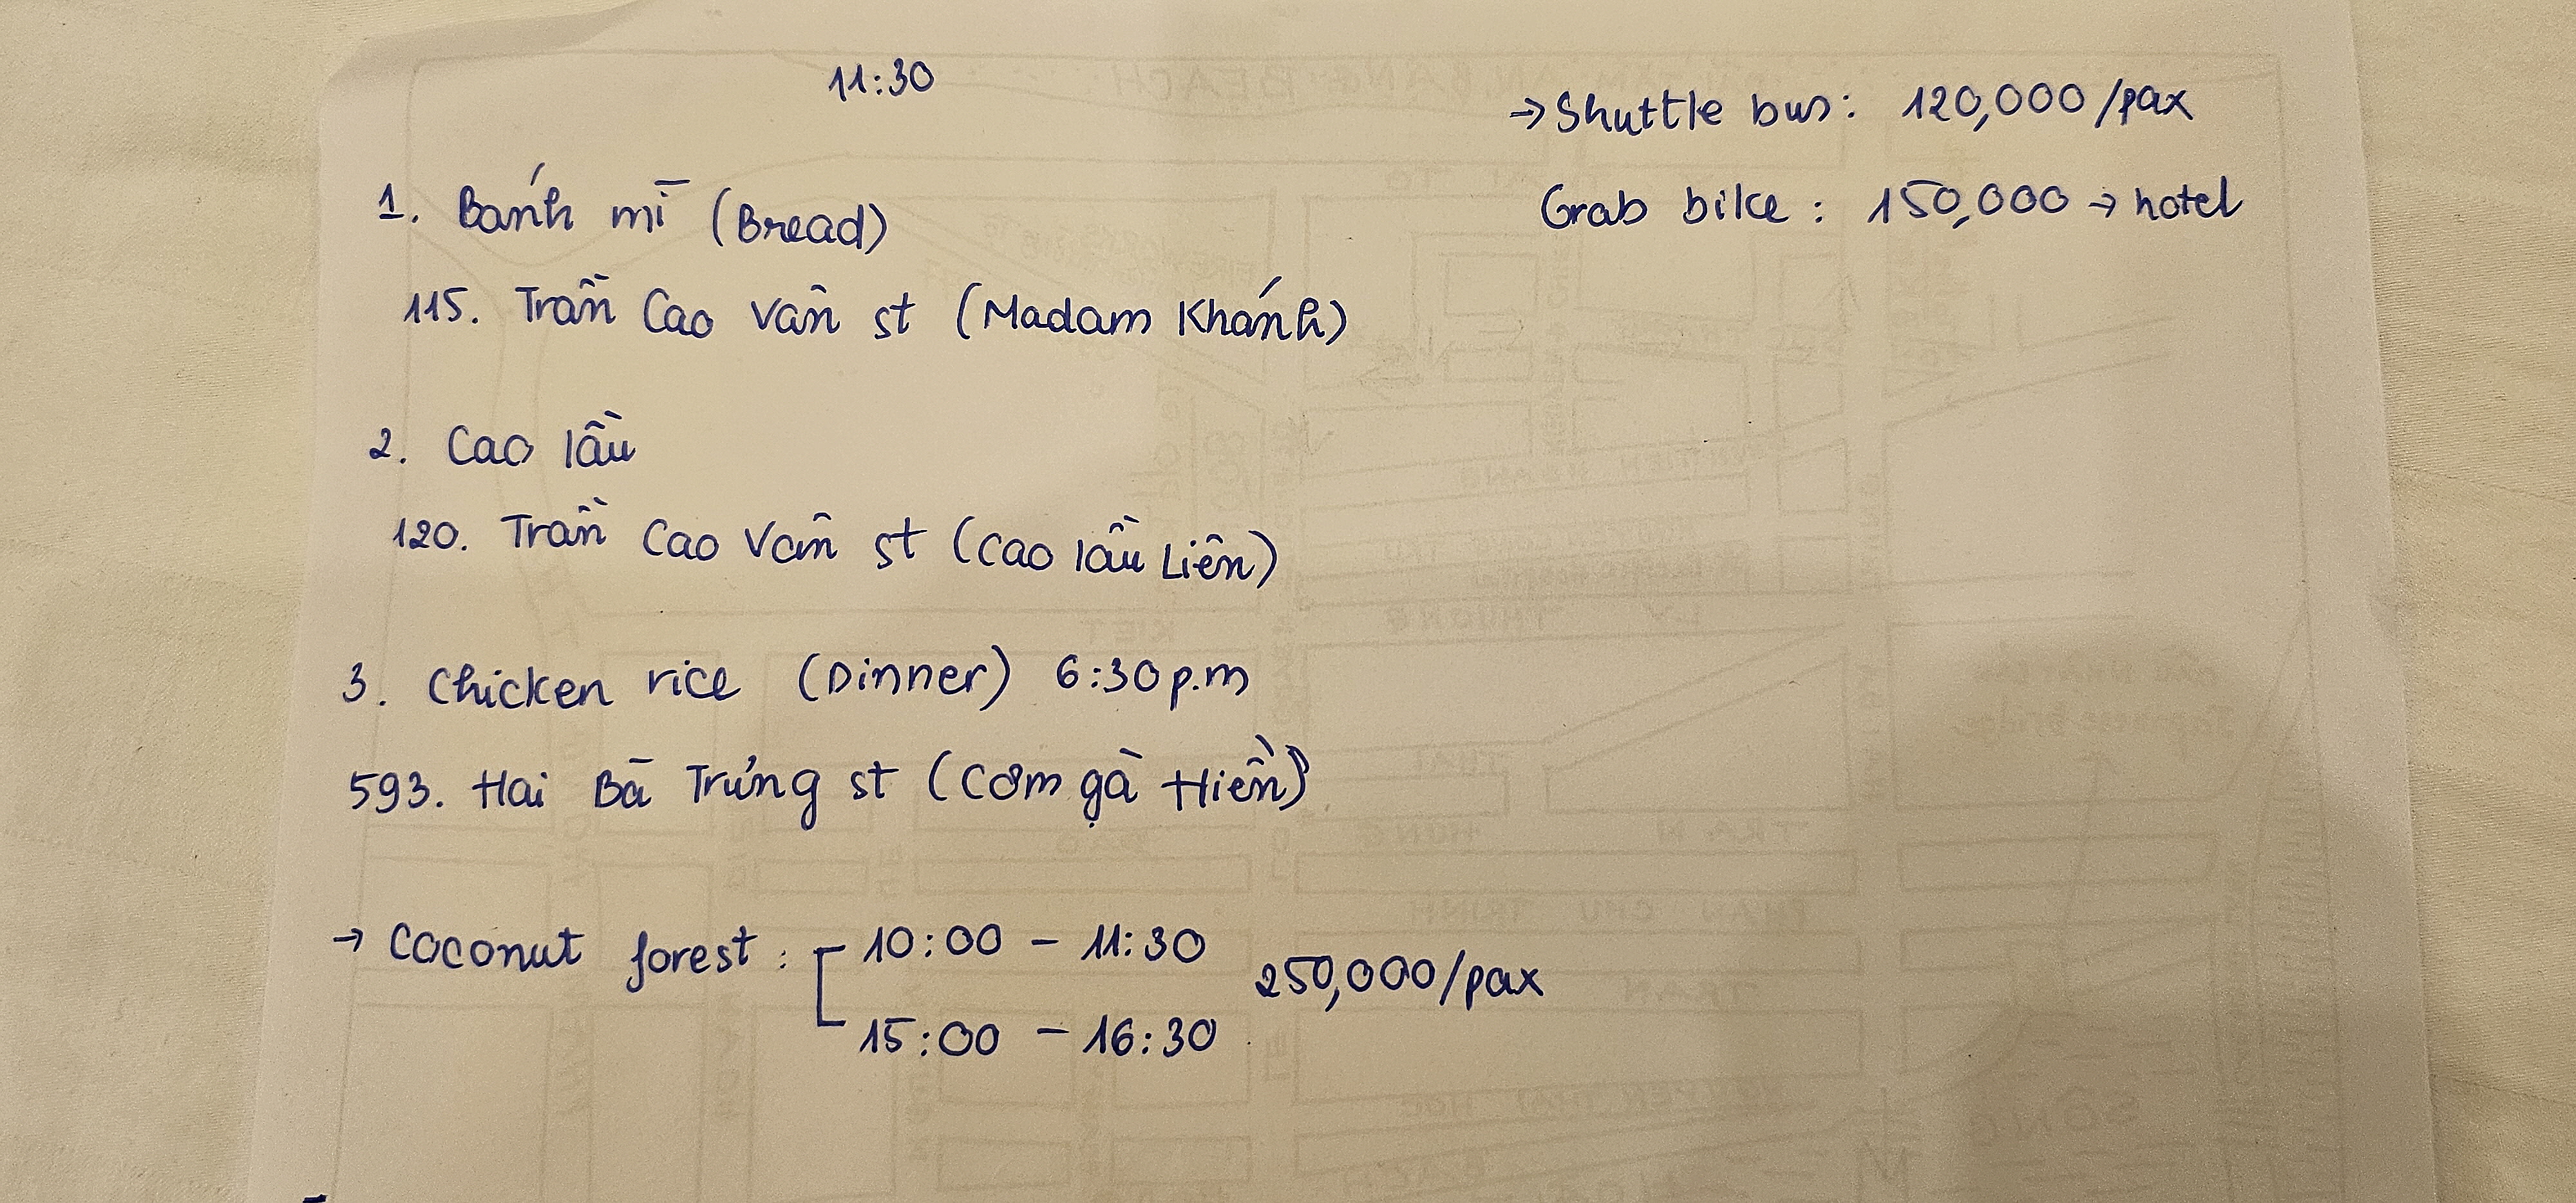 11:30
→ Shuttle bus: 120,000/pax
Grab bike: 150,000 → hotel
1. Bánh mì (Bread)
115. Trần Cao Vân st (Madam Khánh)
2. Cao lầu
120. Trần Cao Vân st (Cao lầu Liên)
3. Chicken rice (Dinner) 6:30 p.m
593. Hai Bà Trưng st (Cơm gà Hiền)
→ Coconut forest: 10:00 - 11:30
250,000/pax
15:00 - 16:30